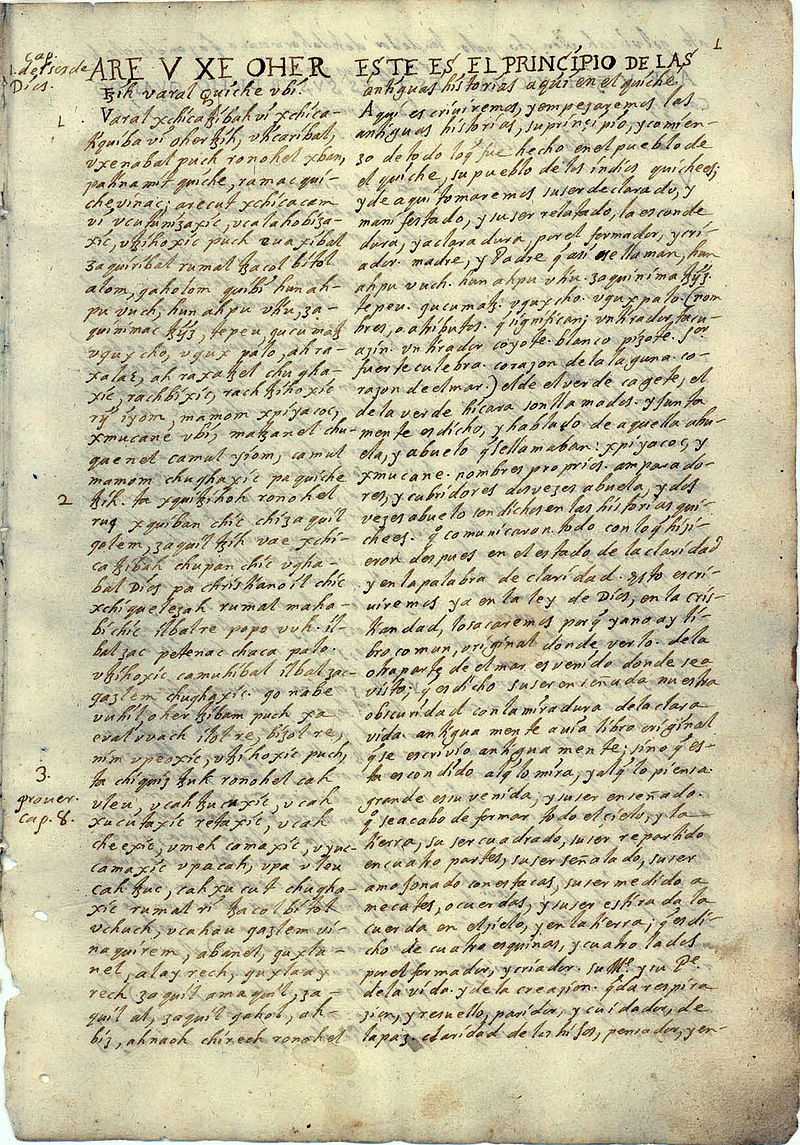 1
Cap.
1. del ser de
Dios.
ARE V XE OHER
ꜩih varal Quiche vbi.
1
Varal xchicaꜩibah vi xchica-
tiquiba vi oher ꜩih, vticaribal,
vxenabal puch ronohel xban,
pa tinamit quiche, ramac qui-
che vinac; are cut xchicacam
vi vcutunizaxic, vcalahobiza-
xic, vꜩihoxic puch euaxibal
zaquiribal rumal ꜩacol bitol
alom, qaholom quibi hun ah-
pu vuch, hun ahpu vtiu, za-
quinimac ꜩyz, tepeu, qucumaꜩ
vqux cho, vqux palo, ah ra-
xa lac, ah raxa ꜩel chugha-
xic, rachbixic, rachꜩihoxic
rij iyom, mamom xpiyacoc,
xmucane vbi, maꜩanel chu-
quenel camul yiom, camul
mamom chughaxic pa quiche
2
ꜩih. ta xquiꜩihoh ronohel
ruq xquiban chic chi zaquil
qolem, zaquil ꜩih vae xchi-
caꜩibah chupan chic vgha-
bal Dios pa christianoil chic
xchiquelezah rumal maha-
bi chic ilbal re popo vuh. il-
bal zac petenac chaca palo.
vꜩihoxic camuhibal ilbal zac
qazlem chughaxic. qo nabe
vuhil, oher ꜩibam puch xa
eval vvach ilol re, bizol re,
nim vpeoxic, vꜩihoxic puch,
3.
prover.
cap. 8.
ta chiquiz ꜩuk ronohel cah
vleu, vcah ꜩucuxic, vcah
xucutaxic retaxic, vcah
cheexic, vmeh camaxic, vyuc
camaxic vpa cah, vpa vleu
cah ꜩuc, cah xucut chugha-
xic rumal ri ꜩacol bitol
vchuch, vcahau qazlem vi-
naquirem, abanel, quxla-
nel, alay rech, quxlaay
rech zaquil amaquil, za-
quil al, zaquil qahol, ah-
biz, ahnaoh chirech ronohel
ESTE ES EL PRINCIPIO DE LAS
antiguas historias aqui en el quiche.
Aqui escriviremos, y empeçaremos las
antiguas historias, su prinsipio, y comien-
zo de todo lo q̃ fue hecho en el pueblo de
el quiche, su pueblo de los indios quichees;
y de aqui tomaremos su ser declarado, y
manifestado, y su ser relatado, la esconde
dura, y aclaradura, por el formador, y cri-
ador. madre, y Padre q̃ ansi se llaman, hun
ahpu vuch. hun ahpu vtiu. zaquinima ꜩyz.
tepeu. qucumaꜩ. vqux cho. vqux palo. (nom
bres, o atributos. q̃ significan; vn tirador tacu-
azin. vn tirador coyote. blanco pizote. for
fuerte culebra. corazon de la laguna. co-
razon de el mar.) el de el verde cagete, el
de la verde hicara son llamados. y junta
mente es dicho, y hablado de aquella abu-
ela, y abuelo q̃ se llamaban: xpiyacoc, y
xmucane. nombres proprios. amparado-
res, y cubridores dos vezes abuela, y dos
vezes abuelo son dichos en las historias qui-
chees. q̃ comunicaron todo con lo q̃ hizi-
eron despues en el estado de la claridad
y en la palabra de claridad. esto escri-
uiremos ya en la ley de Dios, en la cris-
tiandad, lo sacaremos porq̃ ya no ay li-
bro comun, original donde verlo. de la
otra parte de el mar es venido donde sea
visto; q̃ es dicho su ser enseñada nuestra
obscuridad con la miradura de la clara
vida. antiguamente auia libro original
q̃ se escrivio antiguamente; sino q̃ es-
ta escondido al q̃ lo mira, y al q̃ lo piensa.
grande es su venida, y su ser enseñado.
q̃ se acabo de formar todo el cielo, y la
tierra, su ser cuadrado, su ser repartido
en cuatro partes, su ser señalado, su ser
amojonado con estacas, su ser medido a
mecates, o cuerdas, y su ser estirada la
cuerda en el zielo, y en la tierra; q̃ es di-
cho de cuatro esquinas, y cuatro lados
por el formador, y criador. su Me. y su Pe.
de la vida. y de la creazion. q̃ da respira
zion, y resuello, paridor, y cuidador, de
la paz. claridad de los hijos, pensador, y en-